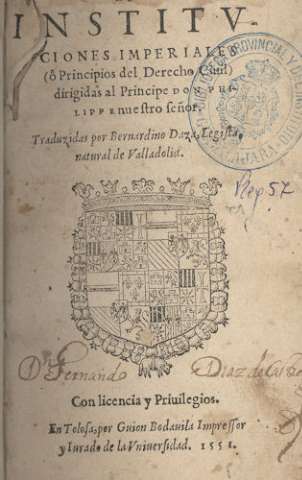 INSTITV-
CIONES IMPERIALES
(ô Principios del Derecho Ciuil)
dirigidas al Principe DON PHI-
LIPPE nuestro señor.
Traduzidas por Bernardino Daza, Legista,
natural de Valladolid.
Rep 57
Con licencia y Priuilegios.
D. Fernando Diaz de
En Tolosa, por Guion Bodauila Impressor
y Iurado de la Vniuersidad. 1551.